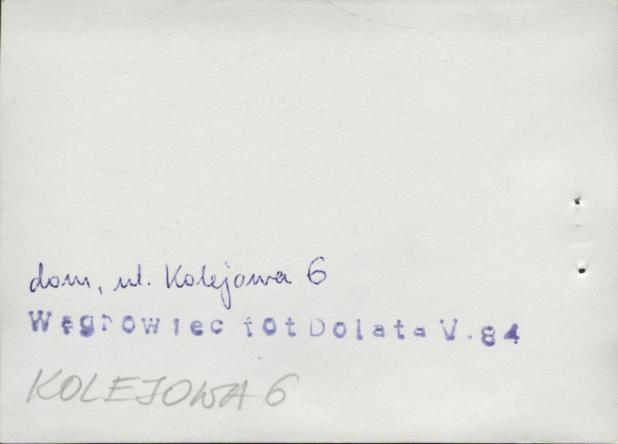 dom, ul. Kolejowa 6
Wągrowiec fot Dolata V.84
KOLEJOWA 6